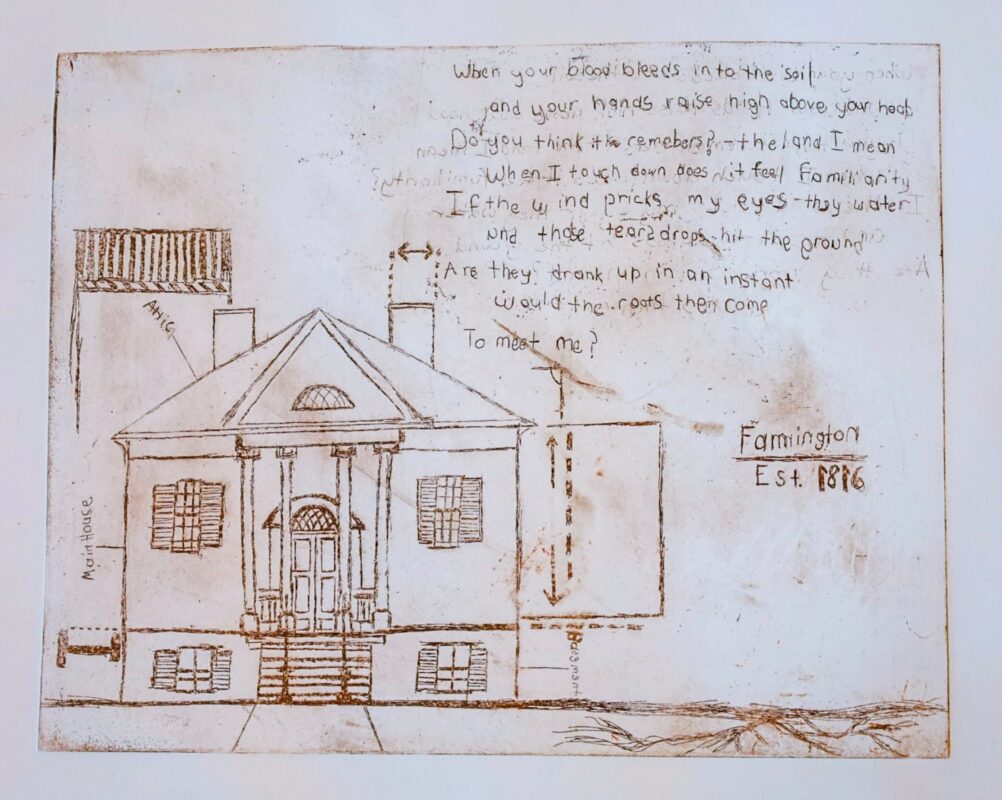 When your blood bleeds into the soil
and your hands raise high above your head
Do you think it remebers? - the land I mean
When I touch down does it feel Familiarity
If the wind pricks my eyes - they water
and those teardrops hit the ground
Are they drank up in an instant
would the roots then come
To meet me?
Attic
Farmington
Est. 1816
Main House
Basement